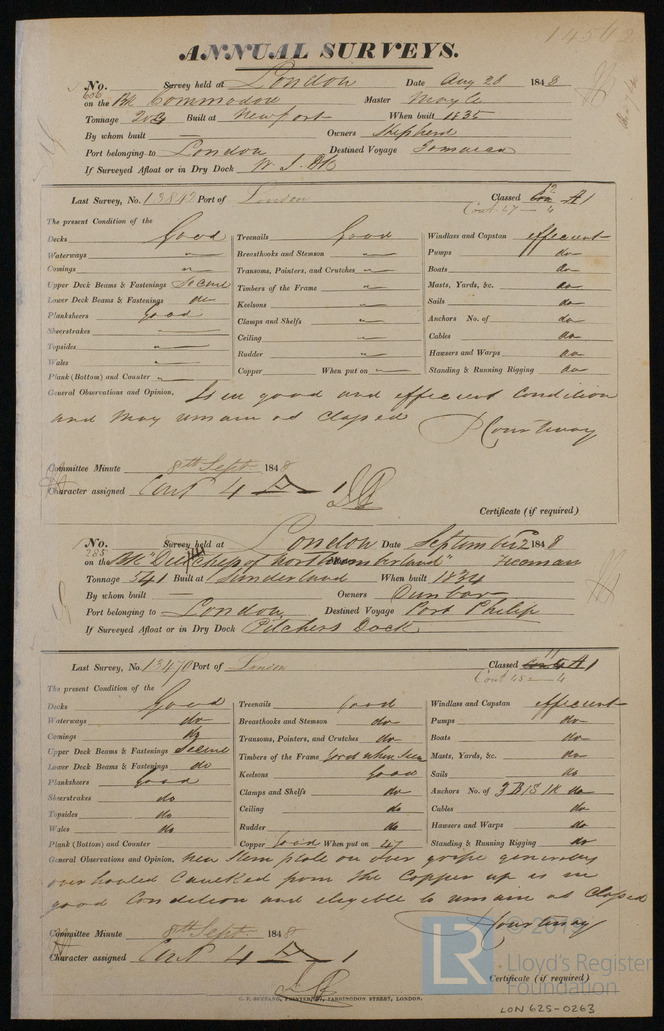 14502
ANNUAL SURVEYS.
No. 606 Survey held at London Date Aug 28 1848
on the Bk Commodore Master Moyle
Tonnage 204 Built at Newport When built 1835
By whom built — Owners Shepherd
Port belonging to London Destined Voyage Jamaica
If Surveyed Afloat or in Dry Dock W. I. Dk
Last Survey, No. 13842 Port of London Classed 12 A1
Cont. 47 — 4
The present Condition of the
Decks Good Treenails Good Windlass and Capstan efficient
Waterways " Breasthooks and Stemson " Pumps do
Comings " Transoms, Pointers, and Crutches " Boats do
Upper Deck Beams & Fastenings Secure Timbers of the Frame " Masts, Yards, &c. do
Lower Deck Beams & Fastenings do Keelsons " Sails do
Planksheers Good Clamps and Shelfs " Anchors No. of do
Sheerstrakes " Ceiling " Cables do
Topsides " Rudder " Hawsers and Warps do
Wales " Copper When put on " Standing & Running Rigging do
Plank (Bottom) and Counter "
General Observations and Opinion, Is in good and efficient condition
and may remain as classed
P Courtenay
Committee Minute 8th Sept 1848
Character assigned Cont 4 A 1
Certificate (if required)
No. 285 Survey held at London Date September 2 1848
on the Bk "Dutchess of Northumberland" Freeman
Tonnage 541 Built at Sunderland When built 1834
By whom built — Owners Dunbar
Port belonging to London Destined Voyage Port Philip
If Surveyed Afloat or in Dry Dock Pitchers Dock
Last Survey, No. 13470 Port of London Classed 11 A1
Cont 45 — 4
The present Condition of the
Decks Good Treenails Good Windlass and Capstan efficient
Waterways do Breasthooks and Stemson do Pumps do
Comings do Transoms, Pointers, and Crutches do Boats do
Upper Deck Beams & Fastenings Secure Timbers of the Frame Good when seen Masts, Yards, &c. do
Lower Deck Beams & Fastenings do Keelsons Good Sails do
Planksheers Good Clamps and Shelfs do Anchors No. of 3 B 1S 1K do
Sheerstrakes do Ceiling do Cables do
Topsides do Rudder do Hawsers and Warps do
Wales do Copper Good When put on 47 Standing & Running Rigging do
Plank (Bottom) and Counter
General Observations and Opinion, new Stem plate on over gripe generally
overhauled Caulked from the Copper up is in
good Condition and eligible to remain as Classed
P Courtenay
Committee Minute 8th Sept 1848
Character assigned Cont 4 A 1
Certificate (if required)
LR
Lloyd's Register
Foundation
LON 625-0263